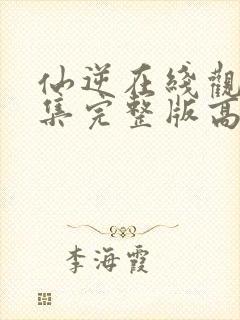 仙逆在綫觀
集完整版高
李海霞